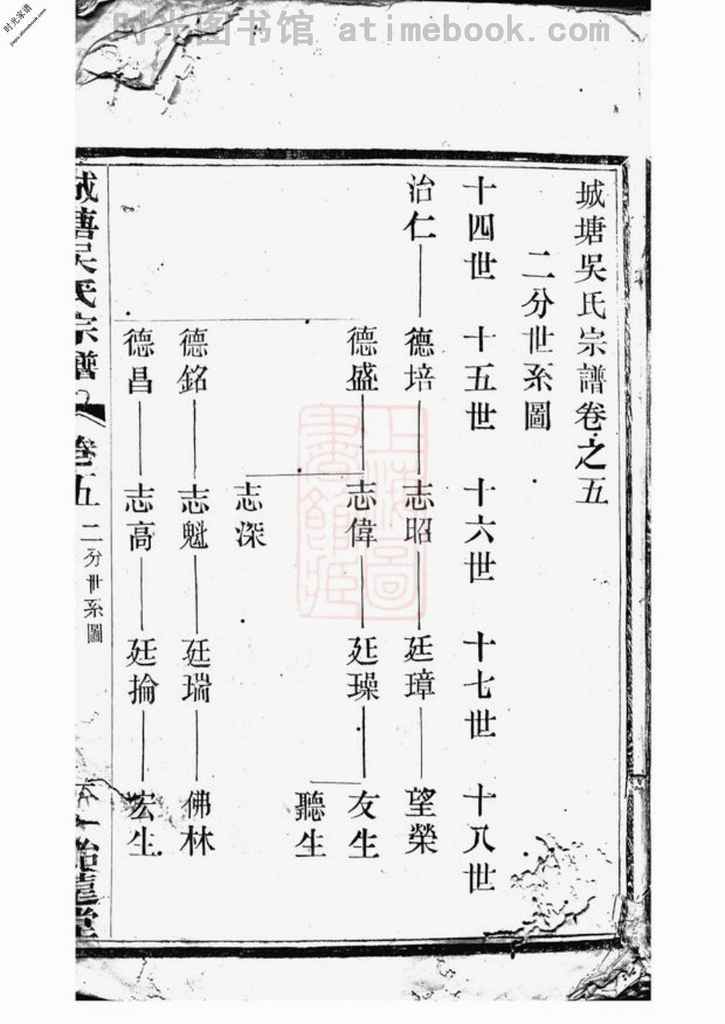 时光图书馆 atimebook.com
时光家谱
城塘吳氏宗譜卷之五
二分世系圖
十四世 十五世 十六世 十七世 十八世
治仁 德培 志昭 廷璋 望榮
德盛 志偉 廷璪 友生
聽生
志深
德銘 志魁 廷瑞 佛林
德昌 志高 廷掄 宏生
城塘吳氏宗譜 卷五 二分世系圖